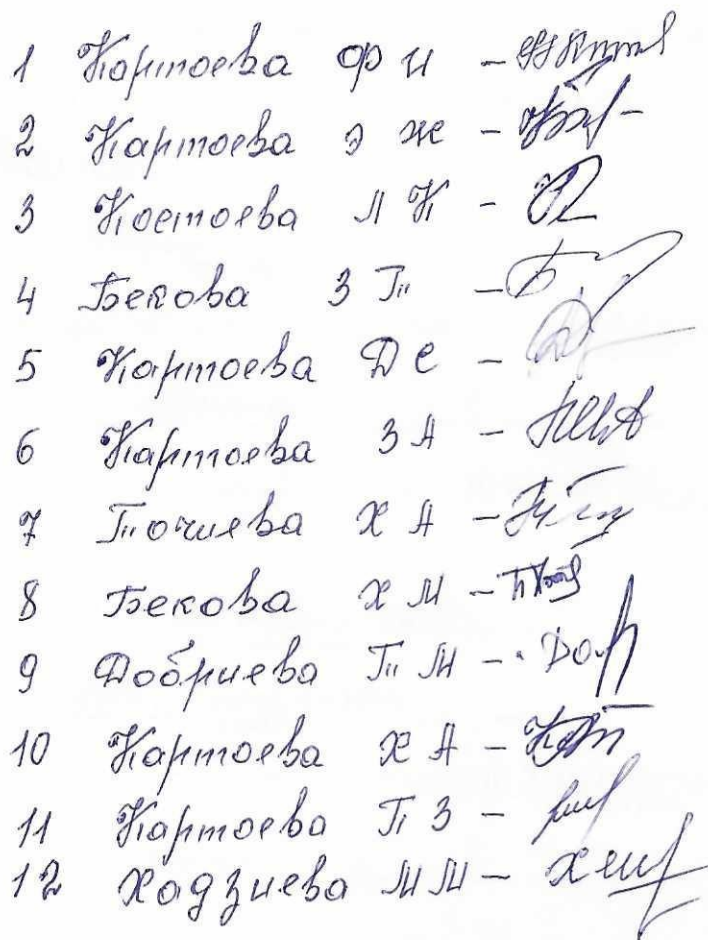 1 Картоева Ф И -
2 Картоева Э Ж -
3 Костоева Л К -
4 Бекова З Т -
5 Картоева Д С -
6 Картоева З А -
7 Точиева Х А -
8 Бекова Х М -
9 Добриева Т М -
10 Картоева Х А -
11 Картоева П З -
12 Хадзиева М М -